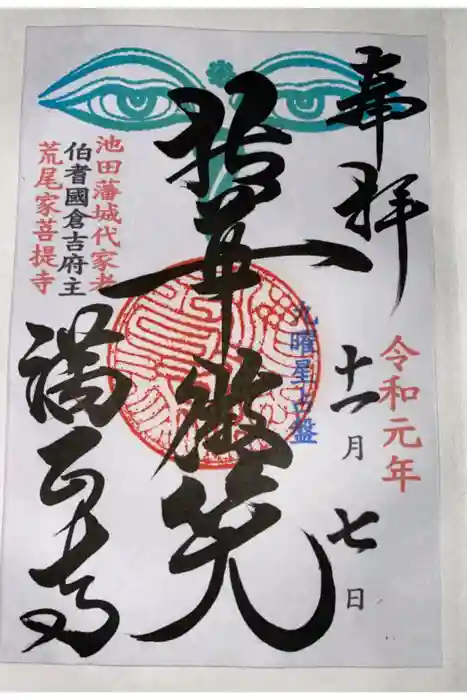 奉拝
令和元年
十一月七日
九曜星占盤
拈華微笑
池田藩城代家老
伯耆國倉吉府主
荒尾家菩提寺
満正寺